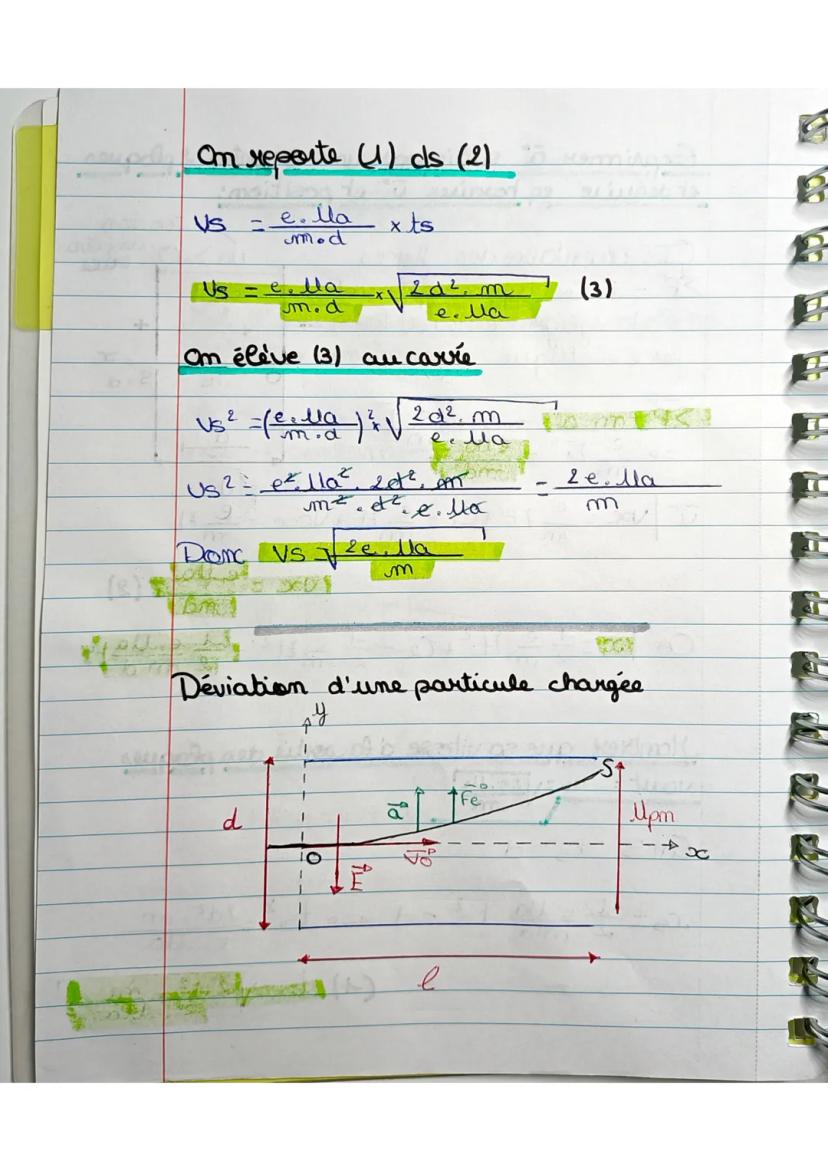 On reporte (1) ds (2)
Vs = e.Ua / m.d × ts
Vs = e.Ua / m.d × √(2d². m / e.Ua) (3)
On élève (3) au carré
Vs² = (e.Ua / m.d)² × √(2d². m / e.Ua)
Vs² = e².Ua². 2d². m / m². d². e. Ua = 2e.Ua / m
Donc Vs = √(2e.Ua / m)
Déviation d'une particule chargée
y
S
d
a⃗
Fe⃗
Upm
O
V0⃗
x
E⃗
l